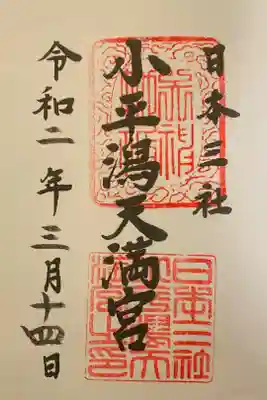 日本三社
小平潟天満宮
令和二年三月十四日